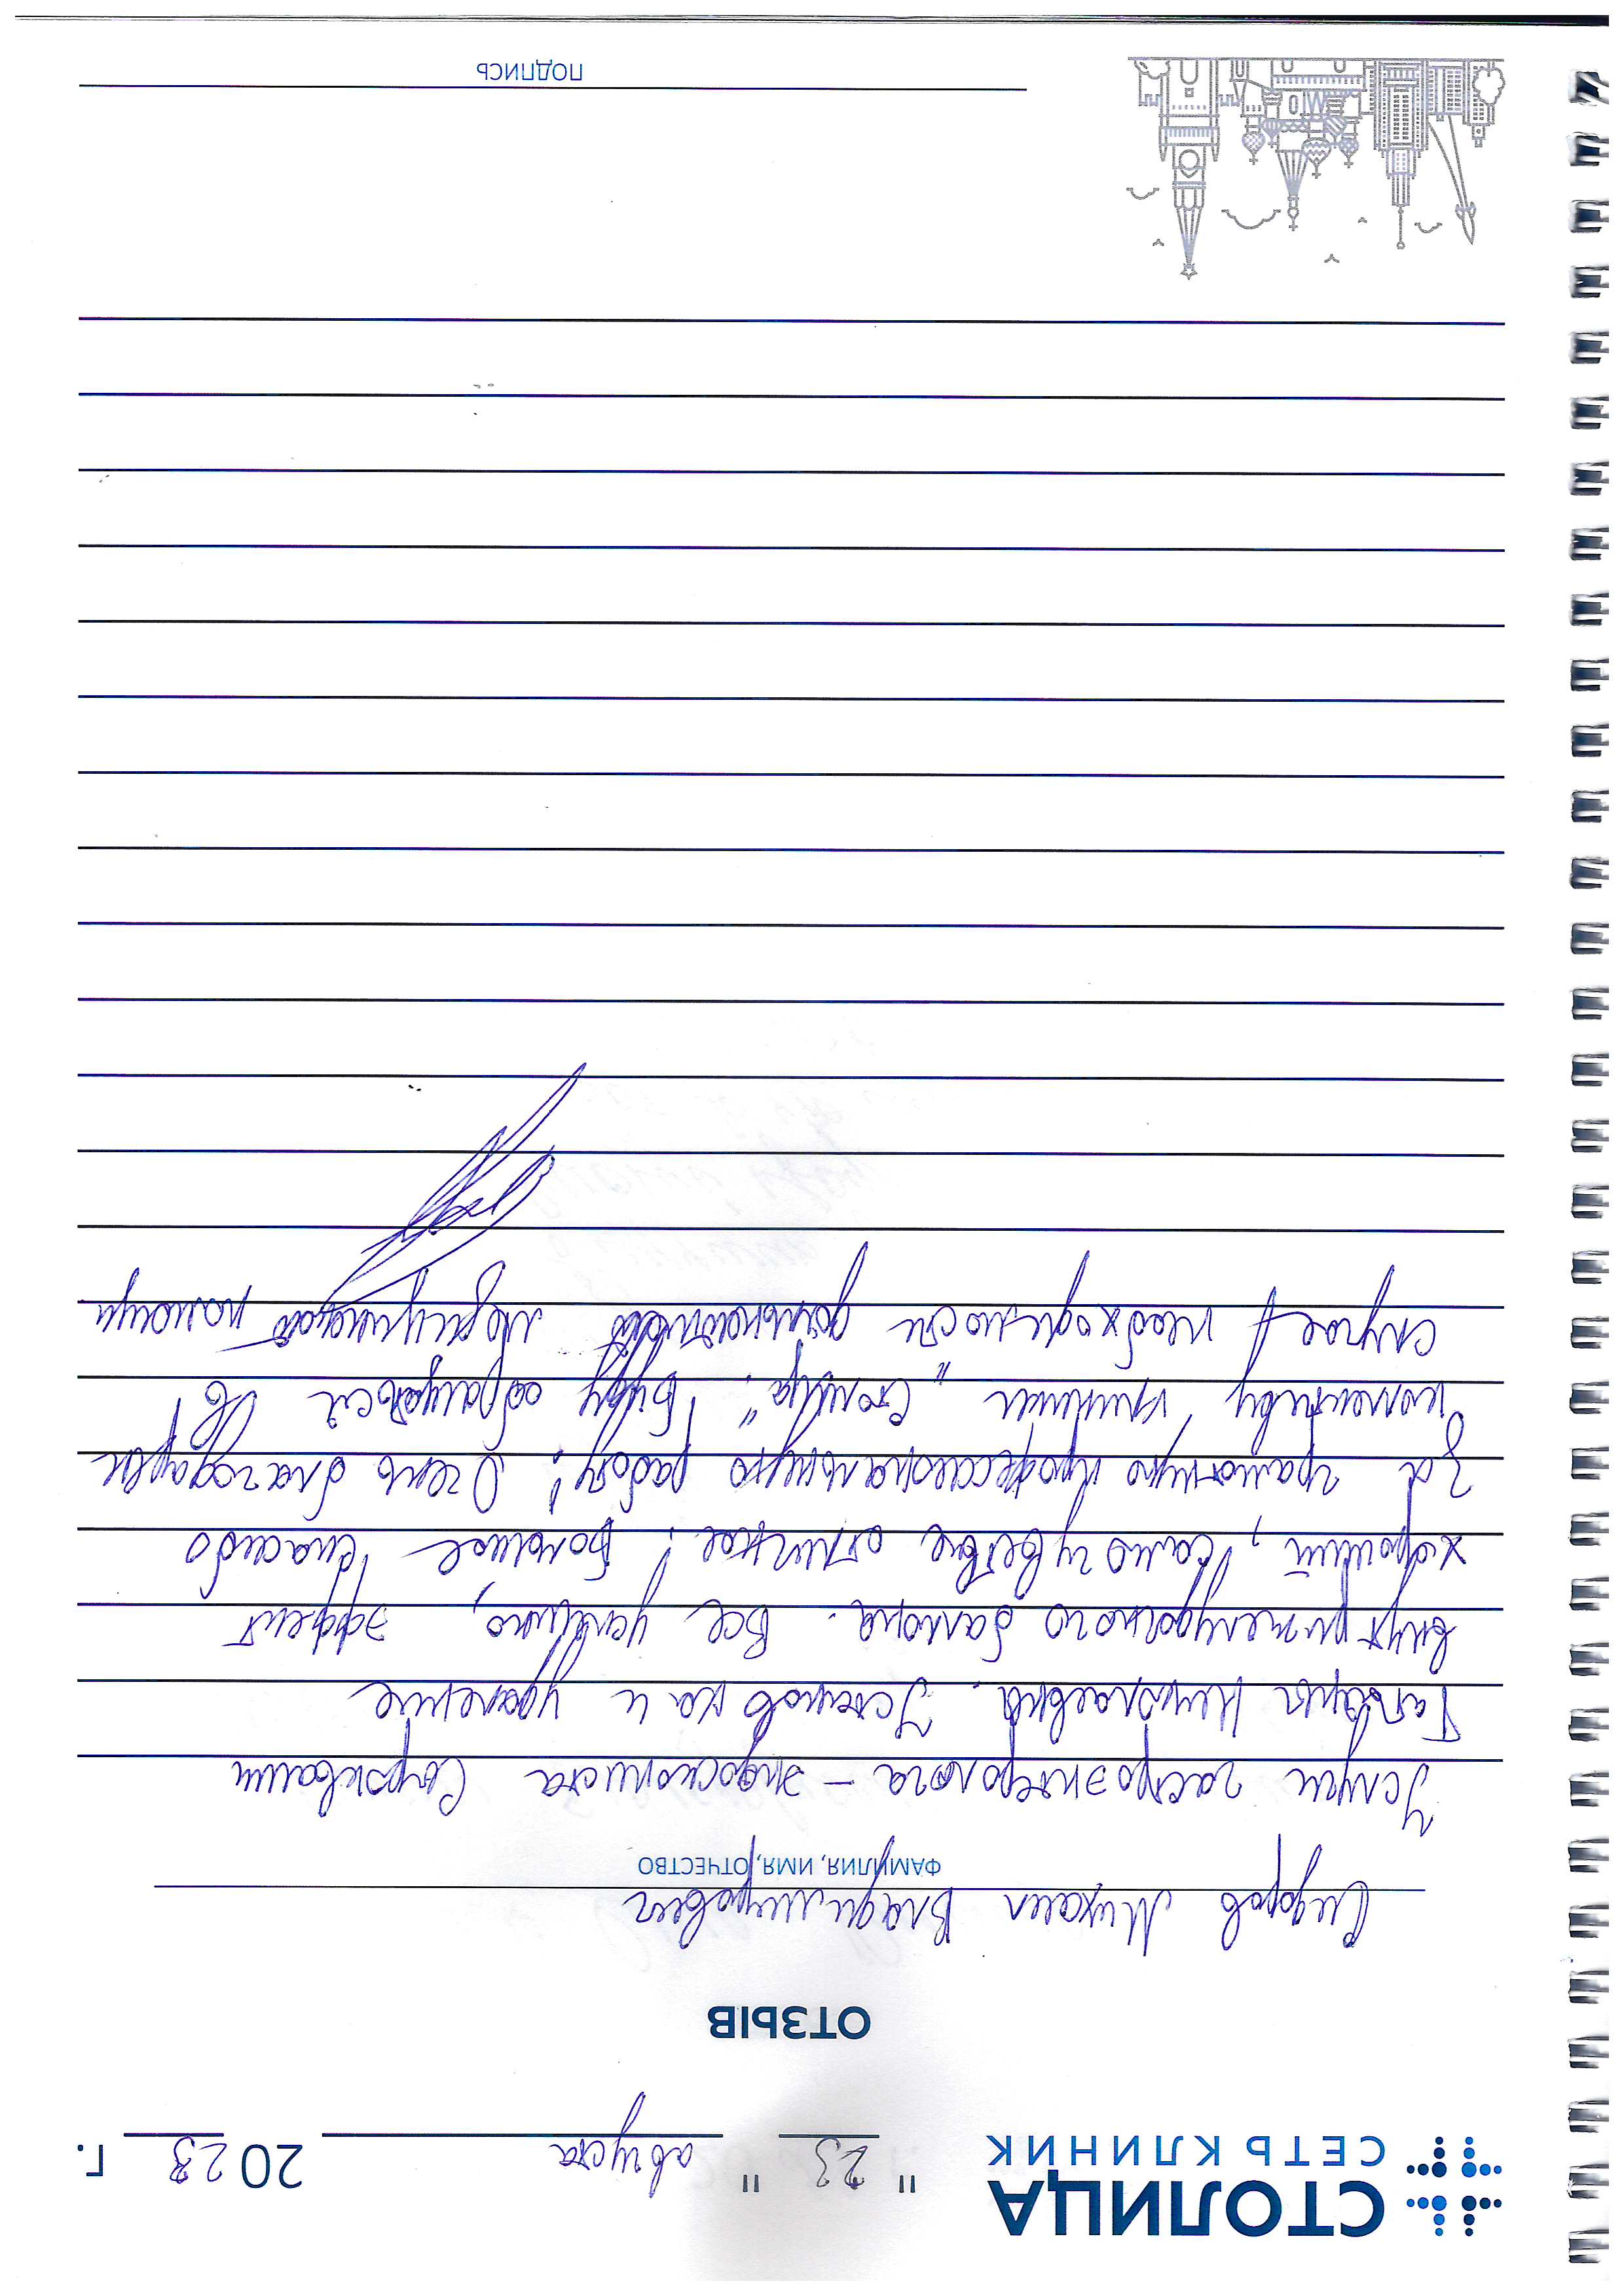 СТОЛИЦА
СЕТЬ КЛИНИК
" 23 " августа 2023 г.
ОТЗЫВ
Сидоров Михаил Владимирович
ФАМИЛИЯ, ИМЯ, ОТЧЕСТВО
Услуги гастроэнтеролога – эндоскописта
Татьяна Николаевна. Установка и удаление
внутрижелудочного балона. Все успешно, эффект
хороший, самочувствие отличное! Большое спасибо
За грамотную профессиональную работу! Очень благодарен
коллективу клиники "Столица". Буду обращаться
случае необходимости дальнейшей медицинской помощи
ПОДПИСЬ